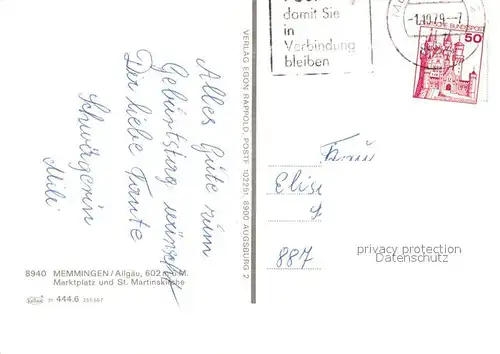 Alles Gute zum
Geburtstag wünscht
Dir liebe Tante
Schwägerin
Mili
8940 MEMMINGEN/Allgäu, 602 m ü. M.
Marktplatz und St. Martinskirche
444.6
VERLAG EGON RAPPOLD, POSTF. 102251, 8900 AUGSBURG 2
damit Sie
in
Verbindung
bleiben
-1.10.79.-7
DEUTSCHE BUNDESPOST
50
Frau
Elise
887
privacy protection
Datenschutz